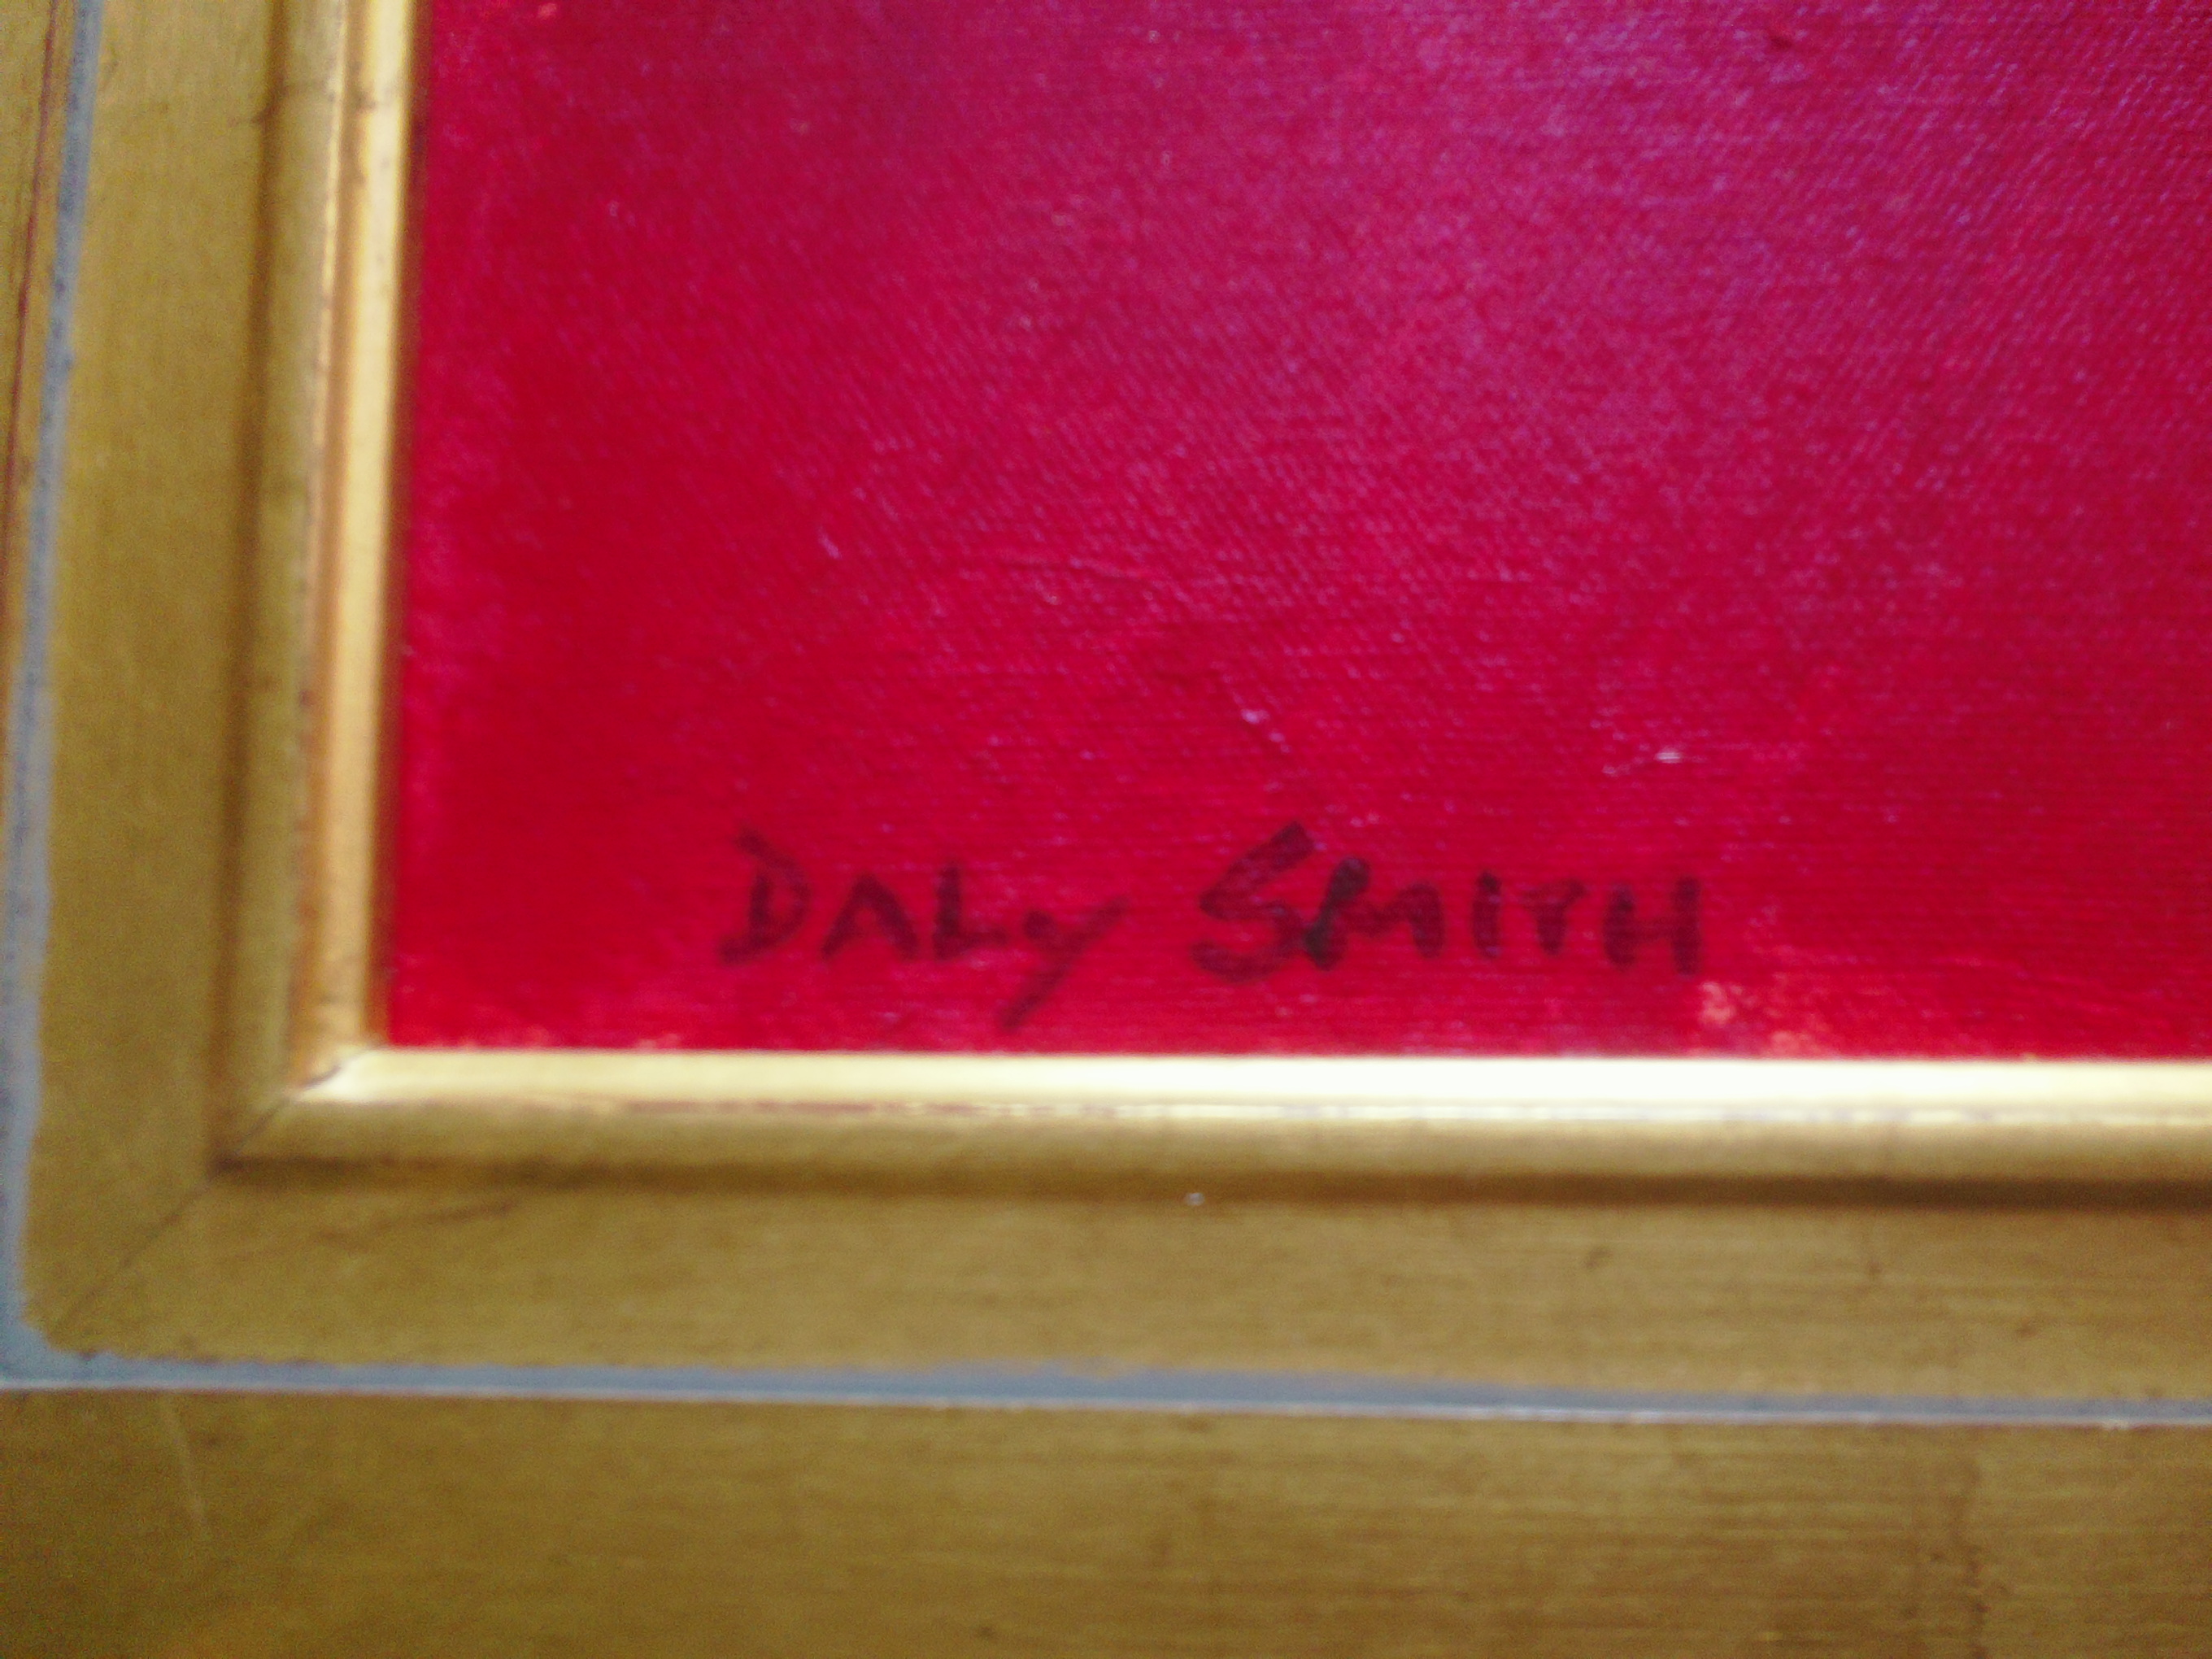 DALY SMITH